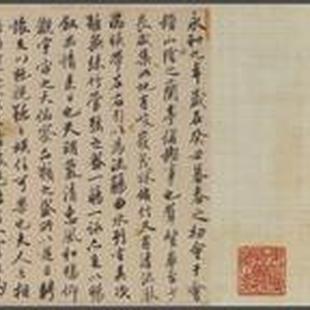 永和九年歲在癸丑暮春之初會于會
稽山陰之蘭亭脩禊事也群賢畢至少
長咸集此地有峻領茂林脩竹又有清流激
湍映帶左右引以為流觴曲水列坐其次
雖無絲竹管弦之盛一觴一詠亦足以暢
敘幽情是日也天朗氣清惠風和暢仰
觀宇宙之大俯察品類之盛所以遊目騁
懷足以極視聽之娛信可樂也夫人之相